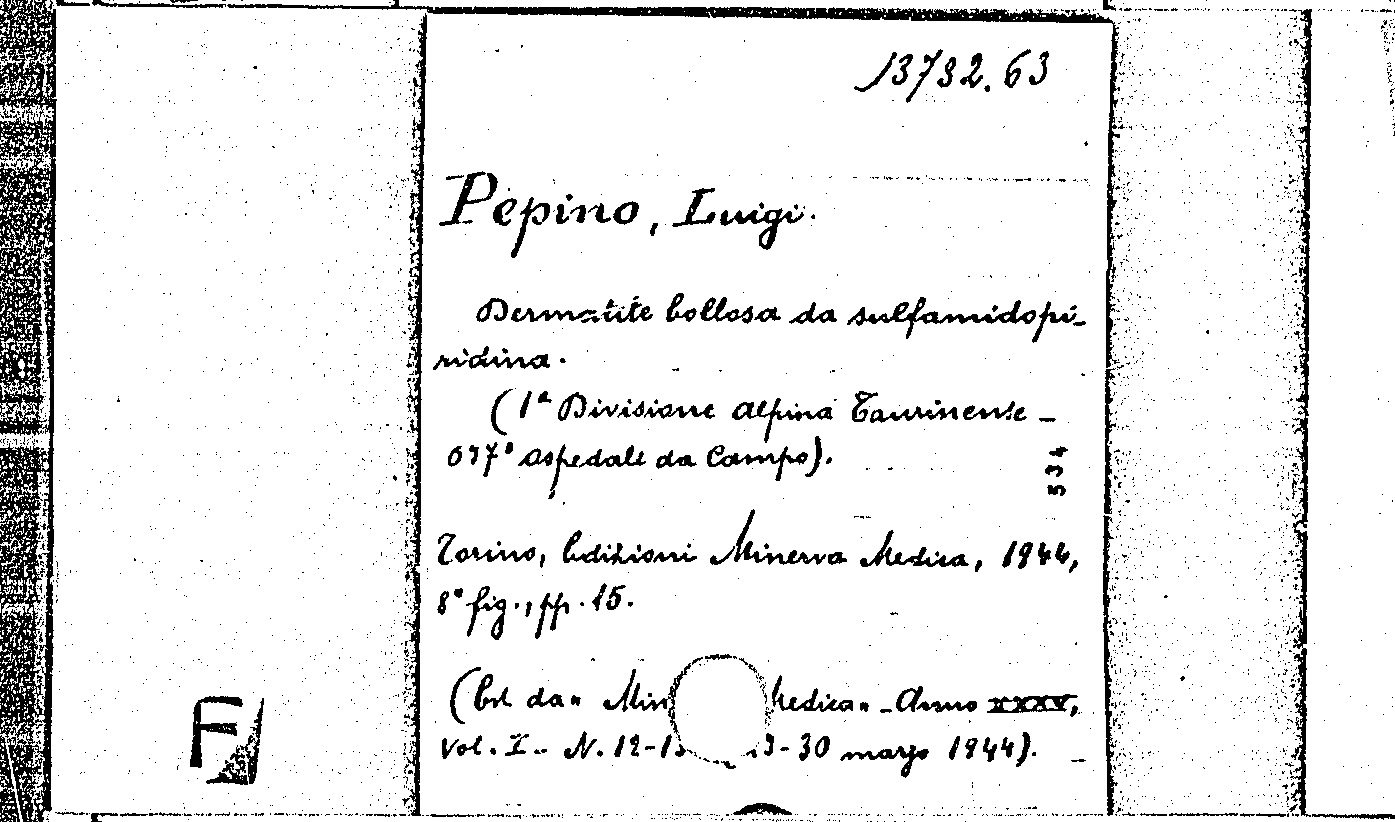 13792.63
Pepino, Luigi.
Dermatite bollosa da sulfamidopi-
ridina.
(1ª Divisione alpina Taurinense -
037° ospedale da Campo).
534
Torino, Edizioni Minerva Medica, 1944,
8° fig., pp. 15.
(Est. da "Min Medica" - Anno XXXV,
vol. I - N. 12-13 - 30 marzo 1944).
F